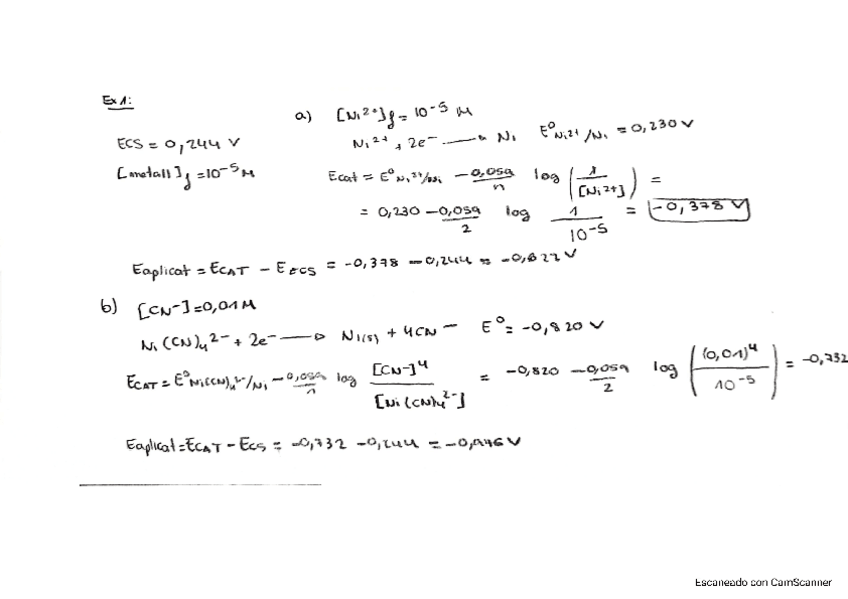 Ex 1:
a) [Ni²⁺]f = 10⁻⁵ M
ECS = 0,244 V
Ni²⁺ + 2e⁻ → Ni E⁰Ni²⁺/Ni = 0,230 V
[metall]f = 10⁻⁵ M
Ecat = E⁰Ni²⁺/Ni − 0,059/n log (1/[Ni²⁺]) =
= 0,230 − 0,059/2 log 1/10⁻⁵ = −0,378 V
Eaplicat = ECAT − EECS = −0,378 − 0,244 = −0,622 V
b) [CN⁻] = 0,01 M
Ni(CN)₄²⁻ + 2e⁻ → Ni(s) + 4CN⁻ E⁰ = −0,820 V
ECAT = E⁰Ni(CN)₄²⁻/Ni − 0,059/n log [CN⁻]⁴/[Ni(CN)₄²⁻] = −0,820 − 0,059/2 log ((0,01)⁴/10⁻⁵) = −0,732
Eaplicat = ECAT − ECS = −0,732 − 0,244 = −0,976 V
Escaneado con CamScanner